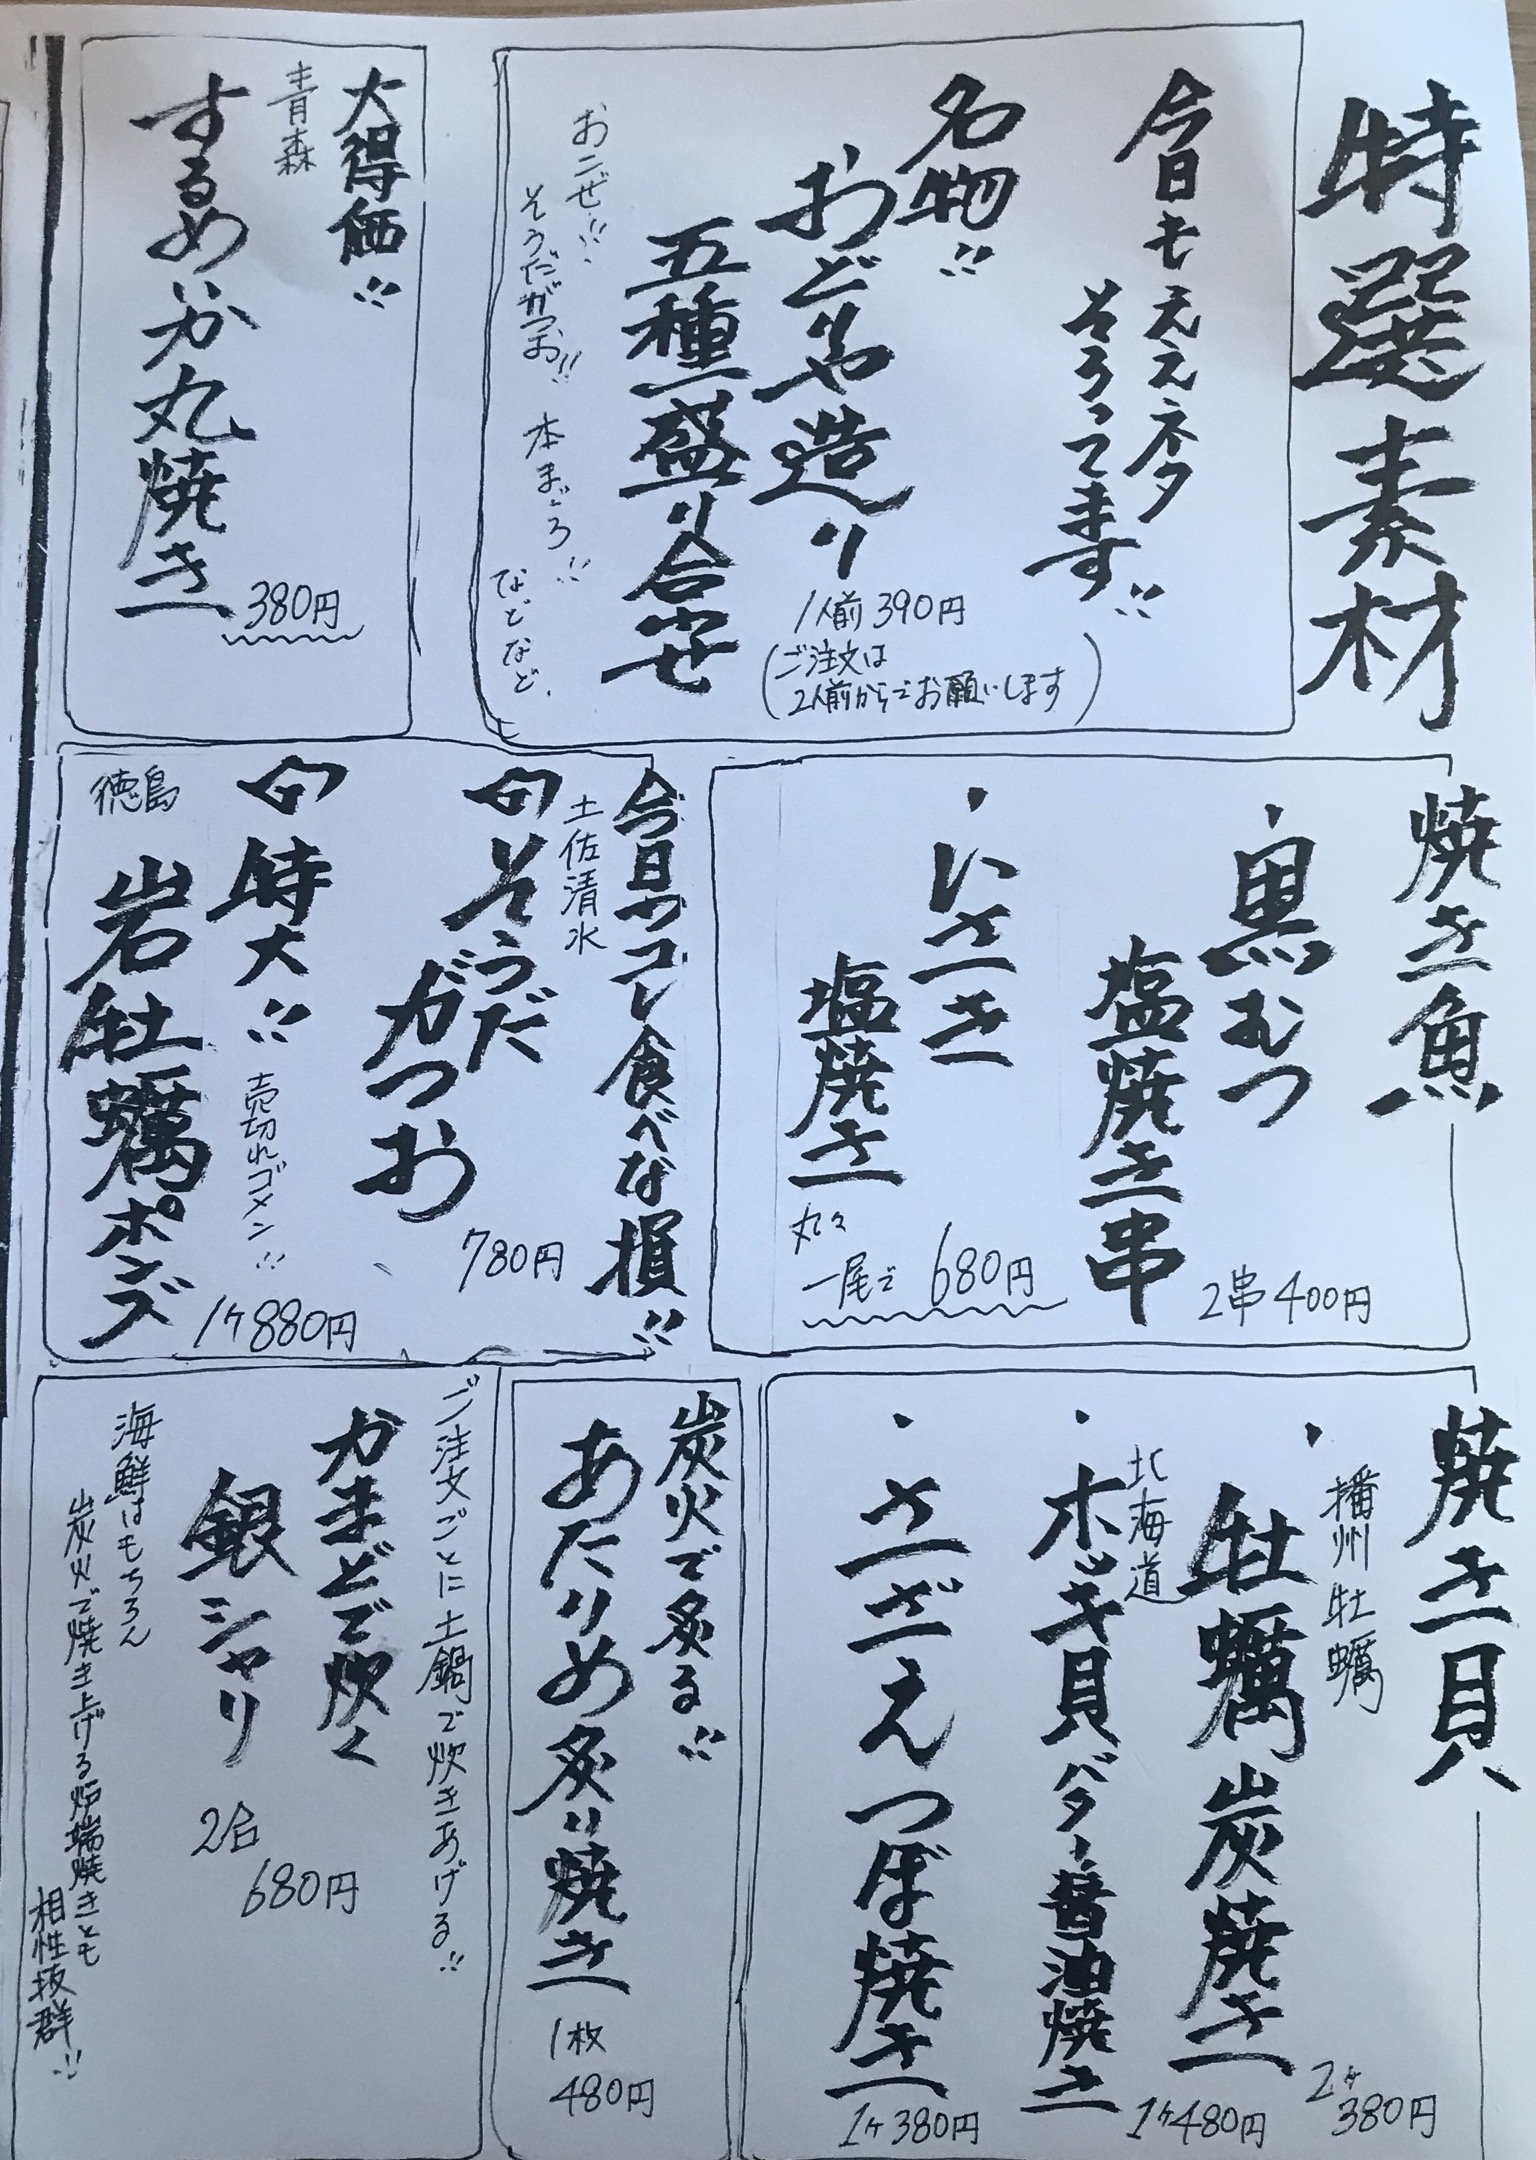 特選素材
今日もええネタ
そろってます!!
名物!!
おどりや造り
五種盛り合せ
1人前390円
(ご注文は
2人前からでお願いします)
おこぜ!!
そうだがつお!! 本まぐろ!!
などなど、
大得価!!
青森
するめいか丸焼き
380円
焼き魚
・黒むつ
塩焼き串
2串400円
・いさき
塩焼き
丸々
一尾で680円
今日コレ食べな損!!
土佐清水
そうだ
がつお
780円
特大!!
売切れゴメン!!
徳島
岩牡蠣ポンズ
1ヶ880円
焼き貝
播州牡蠣
・牡蠣炭焼き
2ヶ
380円
北海道
・ホッキ貝バター醤油焼き
1ヶ480円
・さざえつぼ焼き
1ヶ380円
炭火で炙る!!
あたりめ炙り焼き
1枚
480円
ご注文ごとに土鍋で炊きあげる!!
かまどで炊く
銀シャリ
2合
680円
海鮮はもちろん
炭火で焼き上げる炉端焼きとも
相性抜群!!